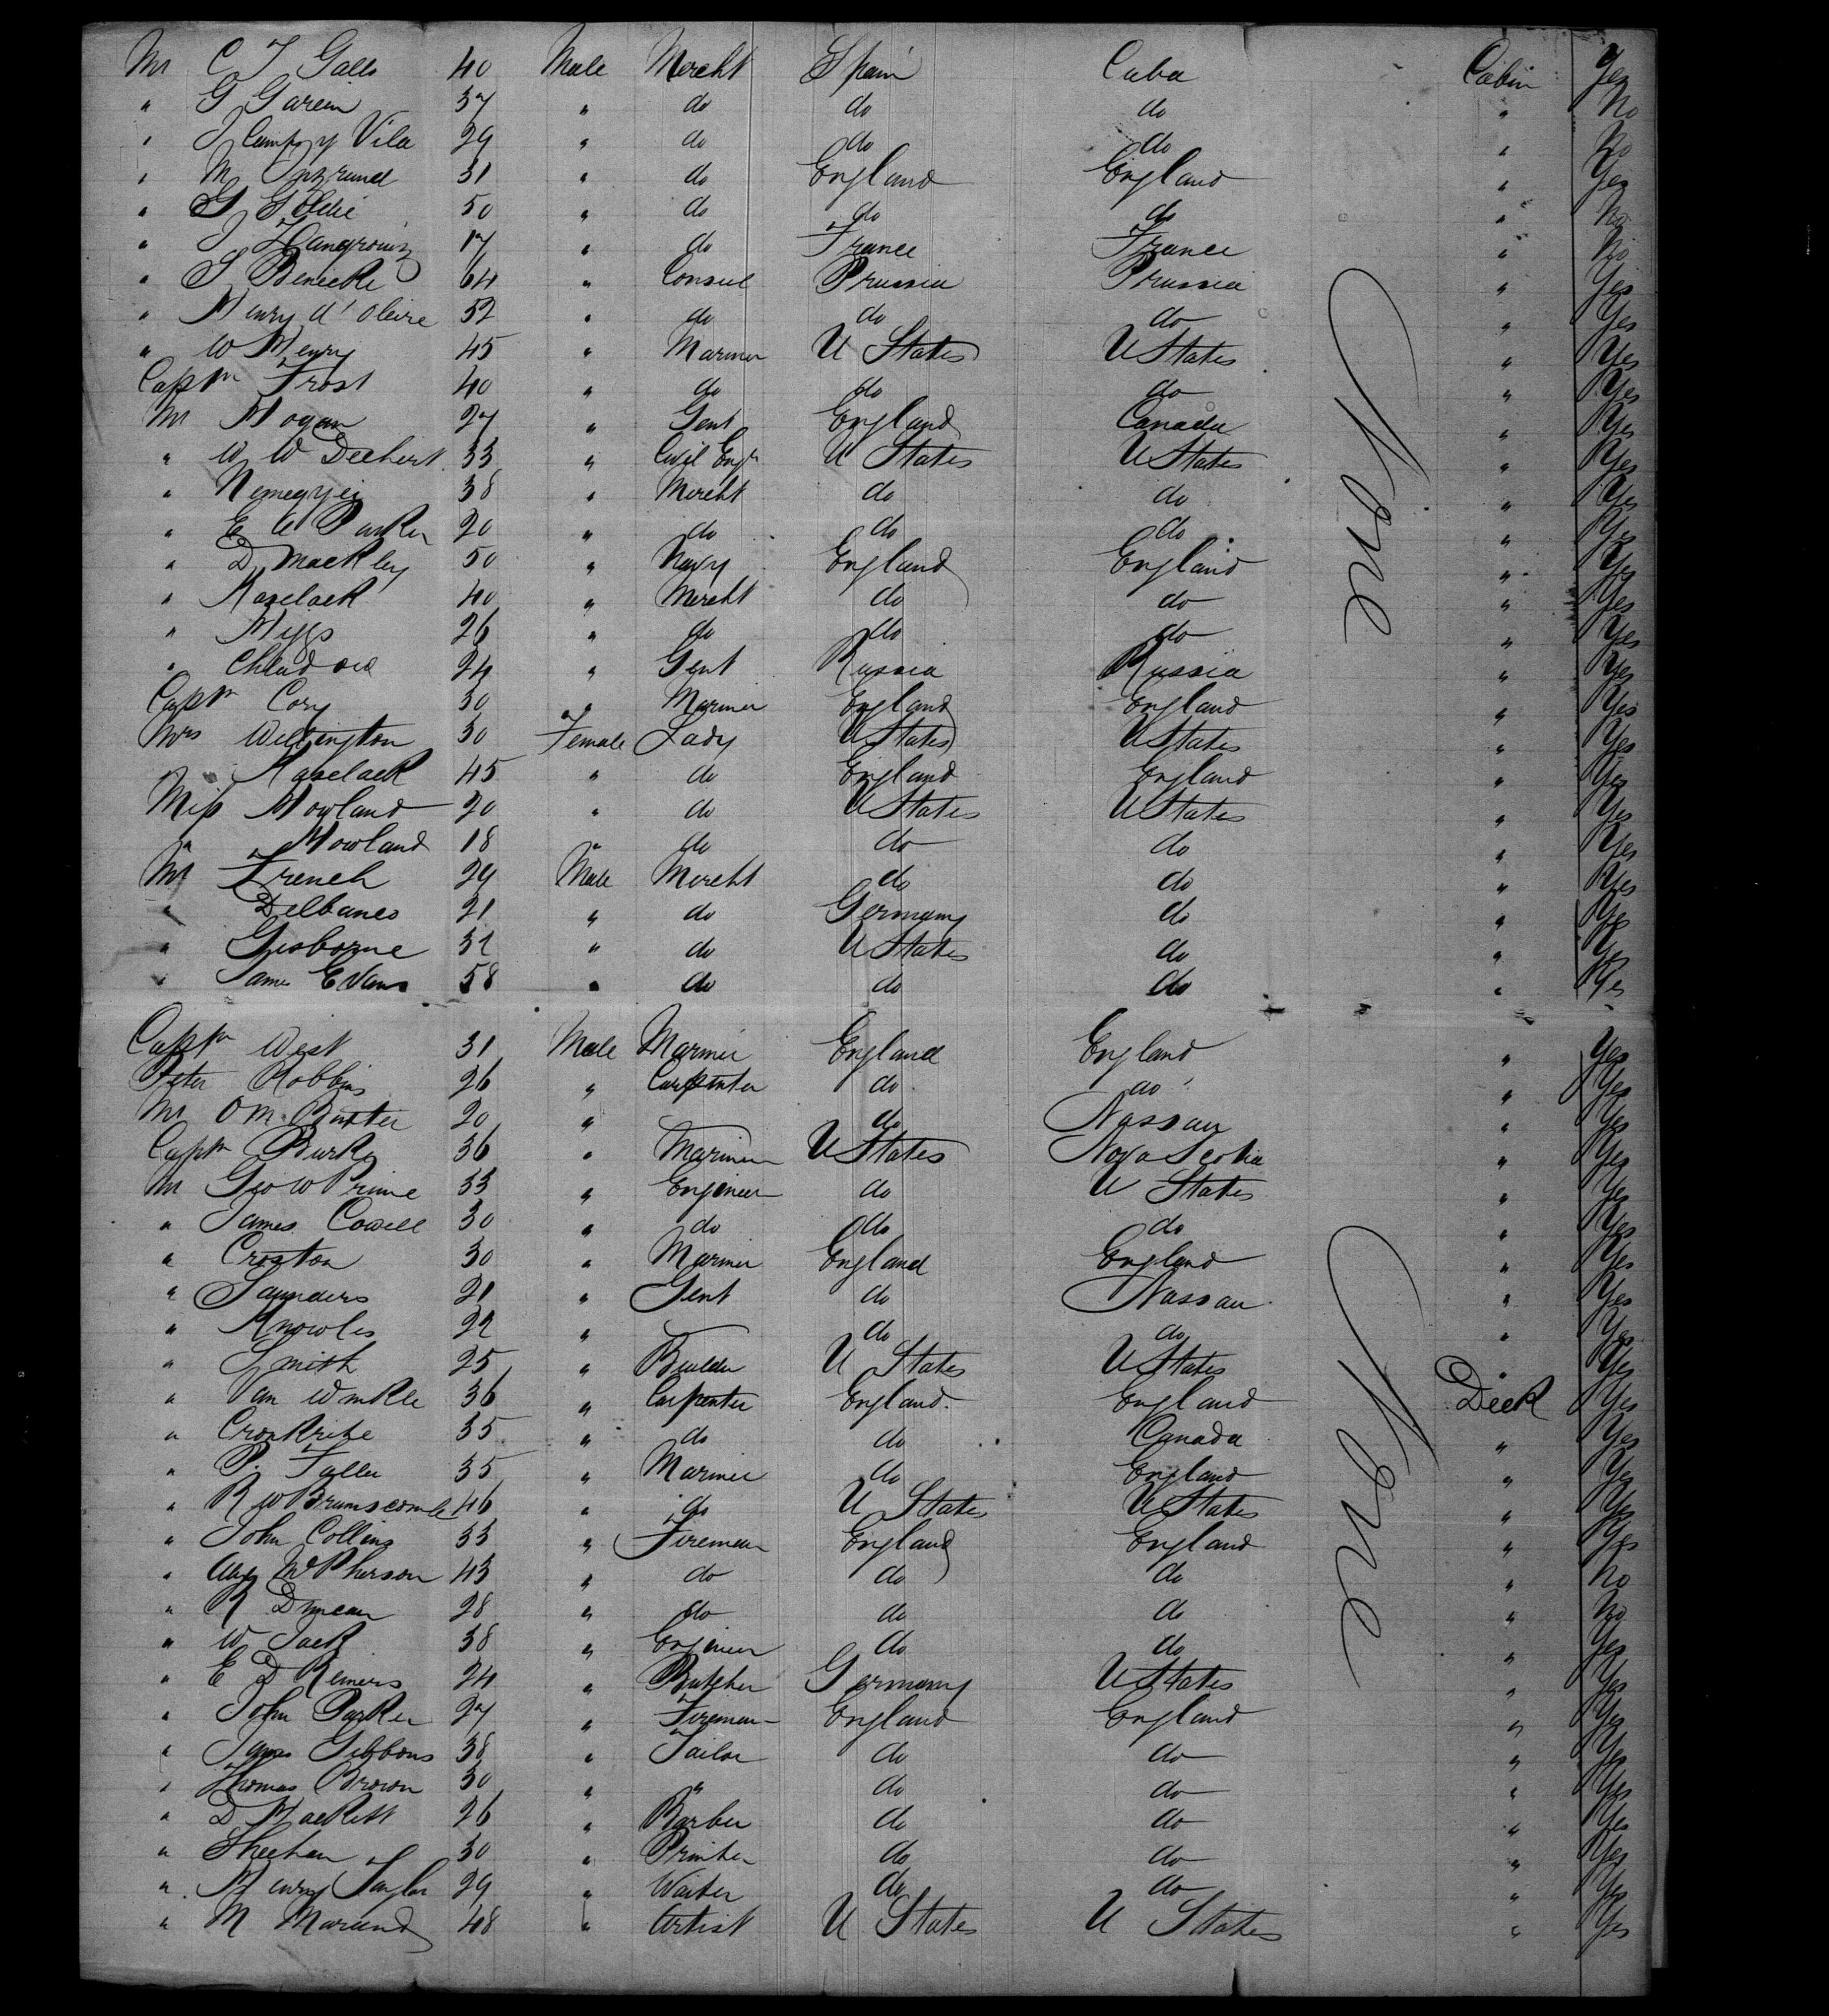 Mr C J Galls 40 Male Mercht Spain Cuba Cabin Yes
" G Garein 37 " do do do " No
" J Camp y Vila 29 " do do do " No
" M 31 " do England England " Yes
" G Goldie 50 " do do do " No
" J 17 " do France France " No
" S Benecke 64 " Consul Prussia Prussia " Yes
" Henry d'Oleire 52 " do do do " Yes
" W Henry 45 " Mariner U States U States " Yes
Captn Frost 40 " do do do " Yes
Mr Hogan 27 " Gent England Canada " Yes
" W W Dechert 33 " Civil Engr U States U States " Yes
" Nemegyei 38 " Mercht do do " Yes
" E C Parker 20 " do do do " Yes
" D Mackley 50 " Navy England England " Yes
" Haselack 40 " Mercht do do " Yes
" 26 " do do do " Yes
" 24 " Gent Russia Russia " Yes
Captn Cory 30 " Mariner England England " Yes
Mrs Wellington 30 Female Lady U States U States " Yes
Haselack 45 " do England England " Yes
Miss Howland 20 " do U States U States " Yes
" Howland 18 " do do do " Yes
Mr French 29 Male Mercht do do " Yes
" Delbanco 21 " do Germany do " Yes
" Gisborne 32 " do U States do " Yes
" James Evans 58 " do do do " Yes
None
Captn West 31 Male Mariner England England " Yes
Peter Robbins 26 " Carpenter do do " Yes
Mr O M Baxter 20 " do Nassau " Yes
Captn Burke 36 " Mariner U States Nova Scotia " Yes
Mr Geo W Prime 33 " Engineer do U States " Yes
" James Cowell 30 " do do do " Yes
" Croston 30 " Mariner England England " Yes
" Saunders 21 " Gent do Nassau " Yes
" Knowles 22 " do do " Yes
" Smith 25 " Builder U States U States " Yes
" Van Winkle 36 " Carpenter England England Deck Yes
" Cronkrite 35 " do do Canada " Yes
" P. Fuller 35 " Mariner do England " Yes
" R W Brumscomb 46 " do U States U States " Yes
" John Collins 33 " Fireman England England " Yes
" Alex McPherson 43 " do do do " No
" R Duncan 28 " do do do " No
" W Jack 38 " Engineer do do " Yes
" E D Remers 24 " Butcher Germany U States " Yes
" John Parker 27 " Fireman England England " Yes
" James Gibbons 38 " Tailor do do " Yes
" Thomas Brown 30 " " do do " Yes
" D Hackett 26 " Barber do do " Yes
" Sheehan 30 " Printer do do " Yes
" Henry Taylor 29 " Waiter do do " Yes
" M Marund 48 " Artist U States U States " Yes
None